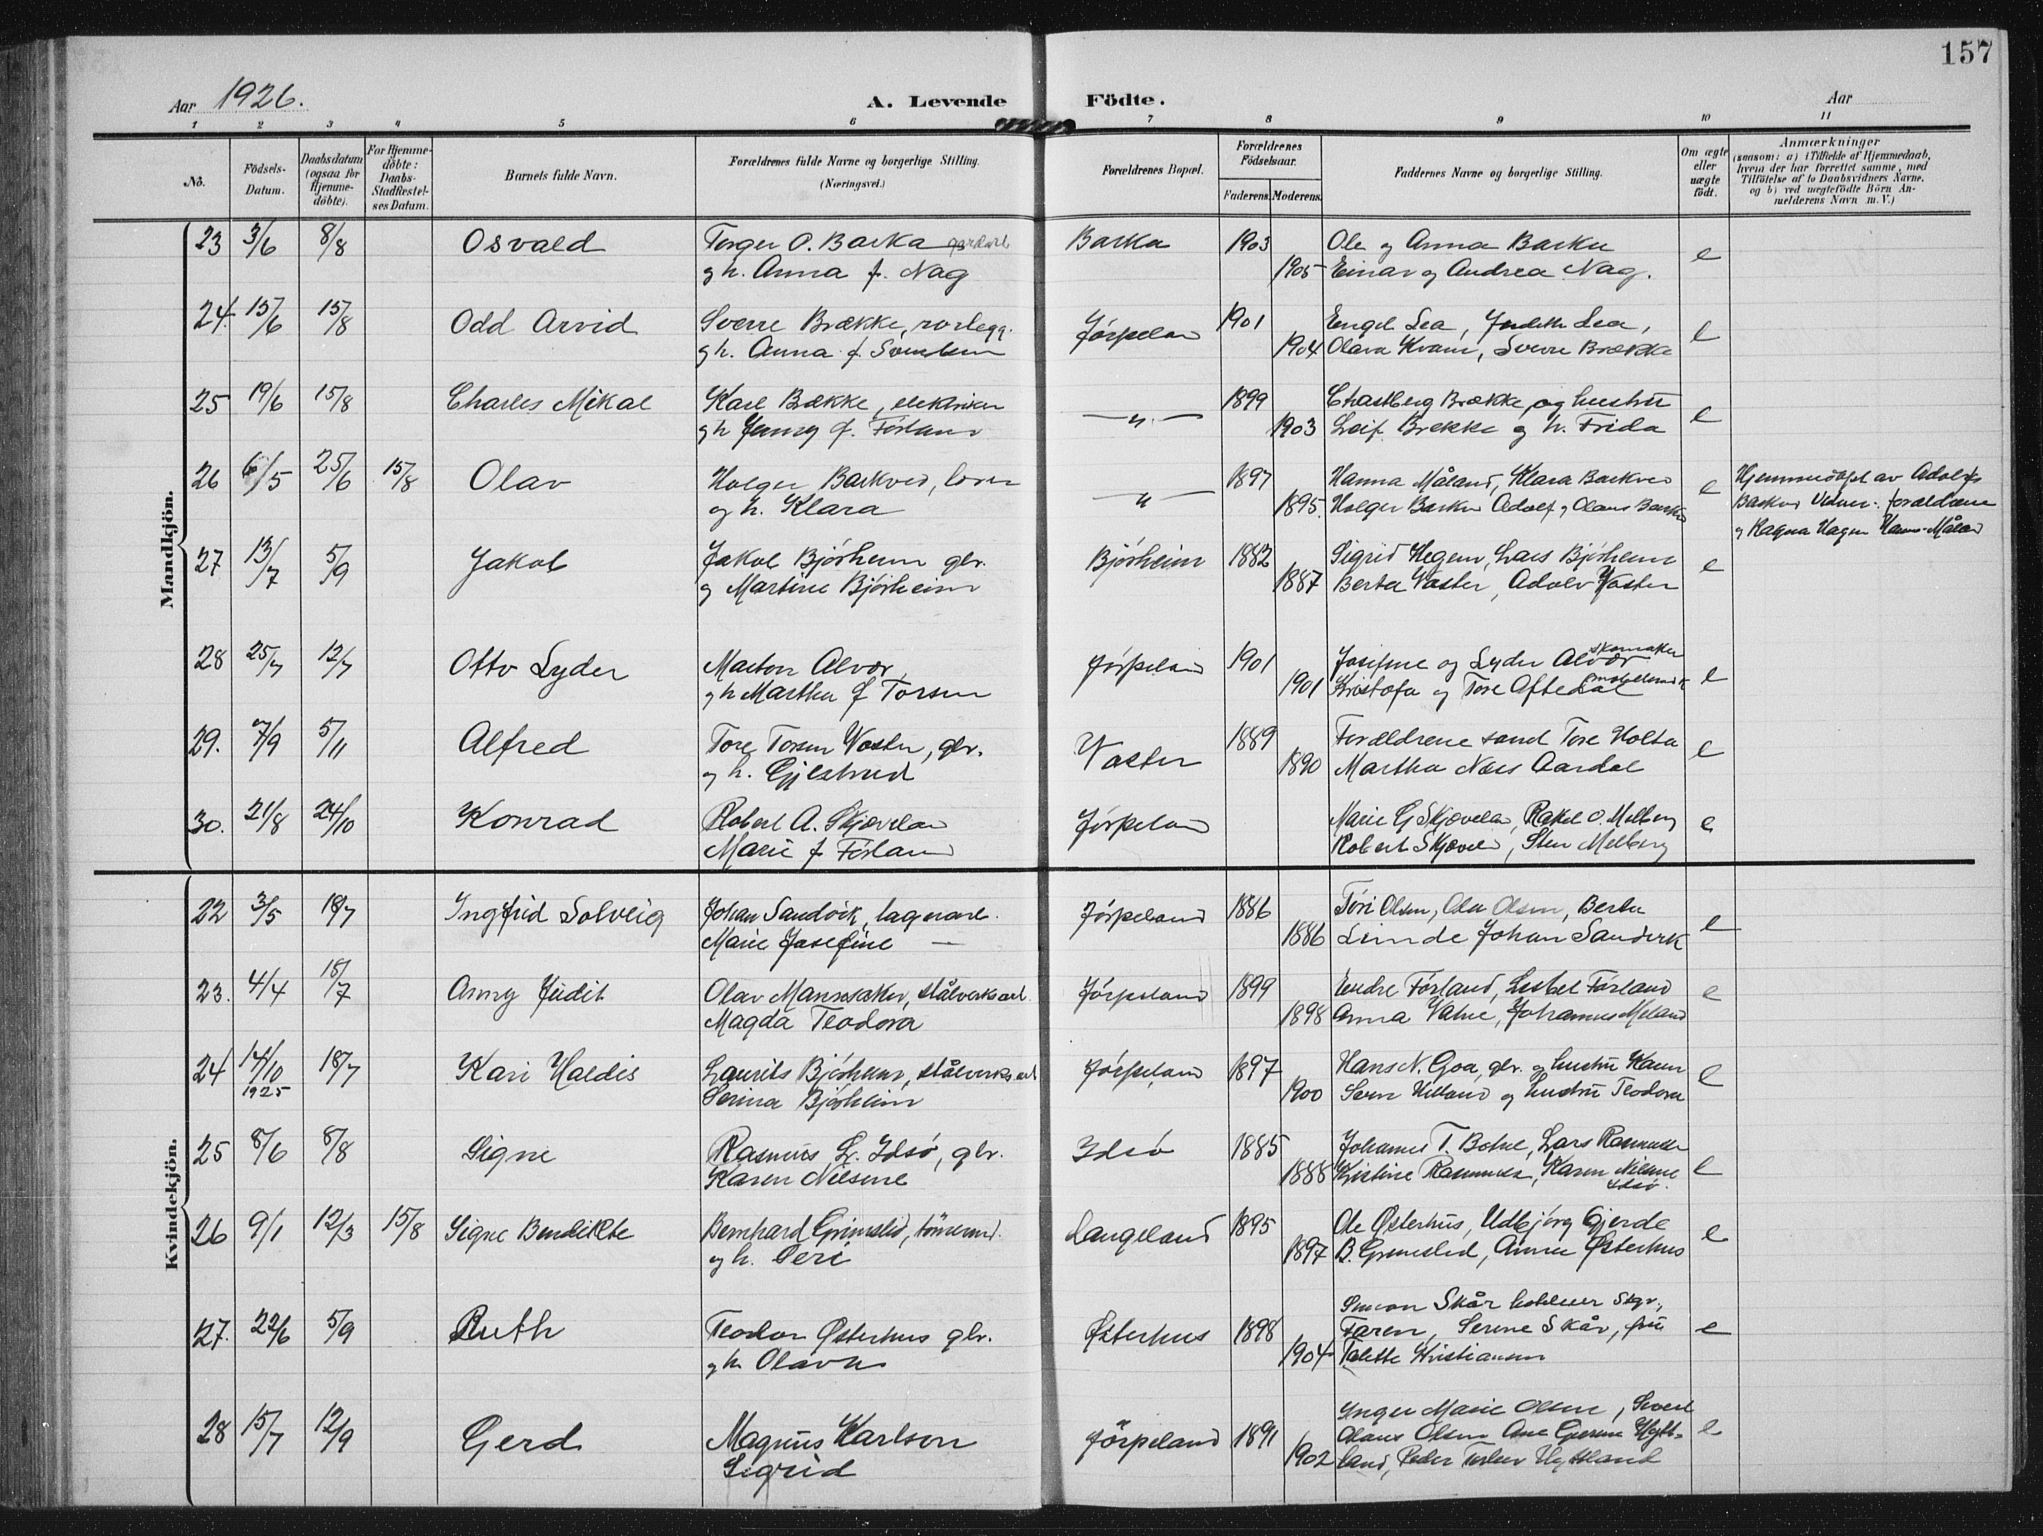 157
Aar 1926.
A. Levende Födte.
Aar
1 2 3 4 5 6 7 8 9 10 11
No.
Födsels-Datum.
Daabsdatum (ogsaa for Hjemme-döbte).
For Hjemme-döbte: Daabs-Stadfæstel-ses Datum.
Barnets fulde Navn.
Forældrenes fulde Navne og borgerlige Stilling. (Næringsvei.)
Forældrenes Bopæl.
Forældrenes Födselsaar.
Faderens. Moderens.
Faddernes Navne og borgerlige Stilling.
Om ægte eller uægte födt.
Anmærkninger
(saasom: a) i Tilfælde af Hjemmedaab, hvem der har forrettet samme, med Tilföielse af to Daabsvidners Navne, og b) ved uegtefödte Börn An-melderens Navn m. V.)
Mandkjön.
23 3/6 8/8 Osvald Torger O. Barka Barka 1903 Ole og Anna Barka e
og h. Anna f. Nag 1905 Einar og Andrea Nag.
24. 15/6 15/8 Odd Arvid Sverre Brække, rørlegg. Jørpelan 1901 Engel Lea, Lea, e
og h. Anna f. Svendsen 1904 Olava Kvam, Sverre Brække
25 19/6 15/8 Charles Mikal Karl Brække, elektriker — " — 1899 Brække og hustru e
og h Jenny f. Førland 1903 Leif Brekke og h. Frida
26 6/5 25/6 15/8 Olav Holger Barkved, — " — 1897 Hanna Måland, Klara Barkved e Hjemmedøpt av Adolf
og h. Klara 1895. Holger Barkved Adolf og Olaus Barkved
og Ragna Hagen
27 13/7 5/9 Jakob Jakob Bjørheim glr. Bjørheim 1882 Sigrid Hegem, Lars Bjørheim e
og Martine Bjørheim 1887 Berta Vaster, Adolv Vaster
28 25/7 12/7 Otto Lyder Marton Alvær, Jørpeland 1901 Josefine og Lyder Alvær skomaker e
og h Martha f Torsen 1901 Kristofa og Tore Aftedal
29. 7/9 5/11 Alfred Tore Torsen Vaster, glr. Vaster 1889 Forældrene samt Tore Holta e
og h. Gjertrud 1890 Martha Næs Aardal
30. 21/8 24/10 Konrad Robert A. Skjævelan Jørpeland Marie G Skjævelan, Rakel O. Melberg e
Marie f Førland Robert Skjævel, Sten Melberg
Kvindekjön.
22 3/5 18/7 Ingfrid Solveig Johan Sandvik, lagerarb. Jørpeland 1886 Olsen, Olsen, Berta e
Marie Josefine — 1886 Linde Johan Sandvik
23. 4/4 18/7 Anny Judit Olav Mannsåker, stålverksarb. Jørpeland 1899 Endre Førland, Lisbet Førland e
Magda Teodora 1898 Anna Valne, Johannes Meland
24 14/10 1925 18/7 Kari Haldis Laurits Bjørheim, stålverksarb Jørpeland 1897 Hans N. Goa, glr. og hustru e
Serina Bjørheim 1900 og hustru Teodora
25 8/6 8/8 Signe Rasmus L. Idsø, glr. Idsø 1885 Johannes T. Botne, Lars Rasmussen
Karen Nilsine 1888 Kristine Rasmussen, Karen Nilsine Idsø. e
26 9/1 12/3 15/8 Signe Bendikte Bernhard Grimslid, tömmerm. Langeland 1895 Ole Østerhus, Udbjørg Gjerde e
og h. Seri 1897 B. Grimslid, Anna Østerhus
27. 22/6 5/9 Ruth Teodor Østerhus glr. Østerhus 1898 Simon Skår
og h. Olava 1904 Faren, Serine Skår, fru e
Talette Kristiansen
28 15/7 12/9 Gerd Magnus Karlson Jörpeland 1891 Inger Marie Olsen, Sivert
Sigrid 1902 Olaus Olsen Ane Hytt- e
land, Peder Torleiv Hyttland